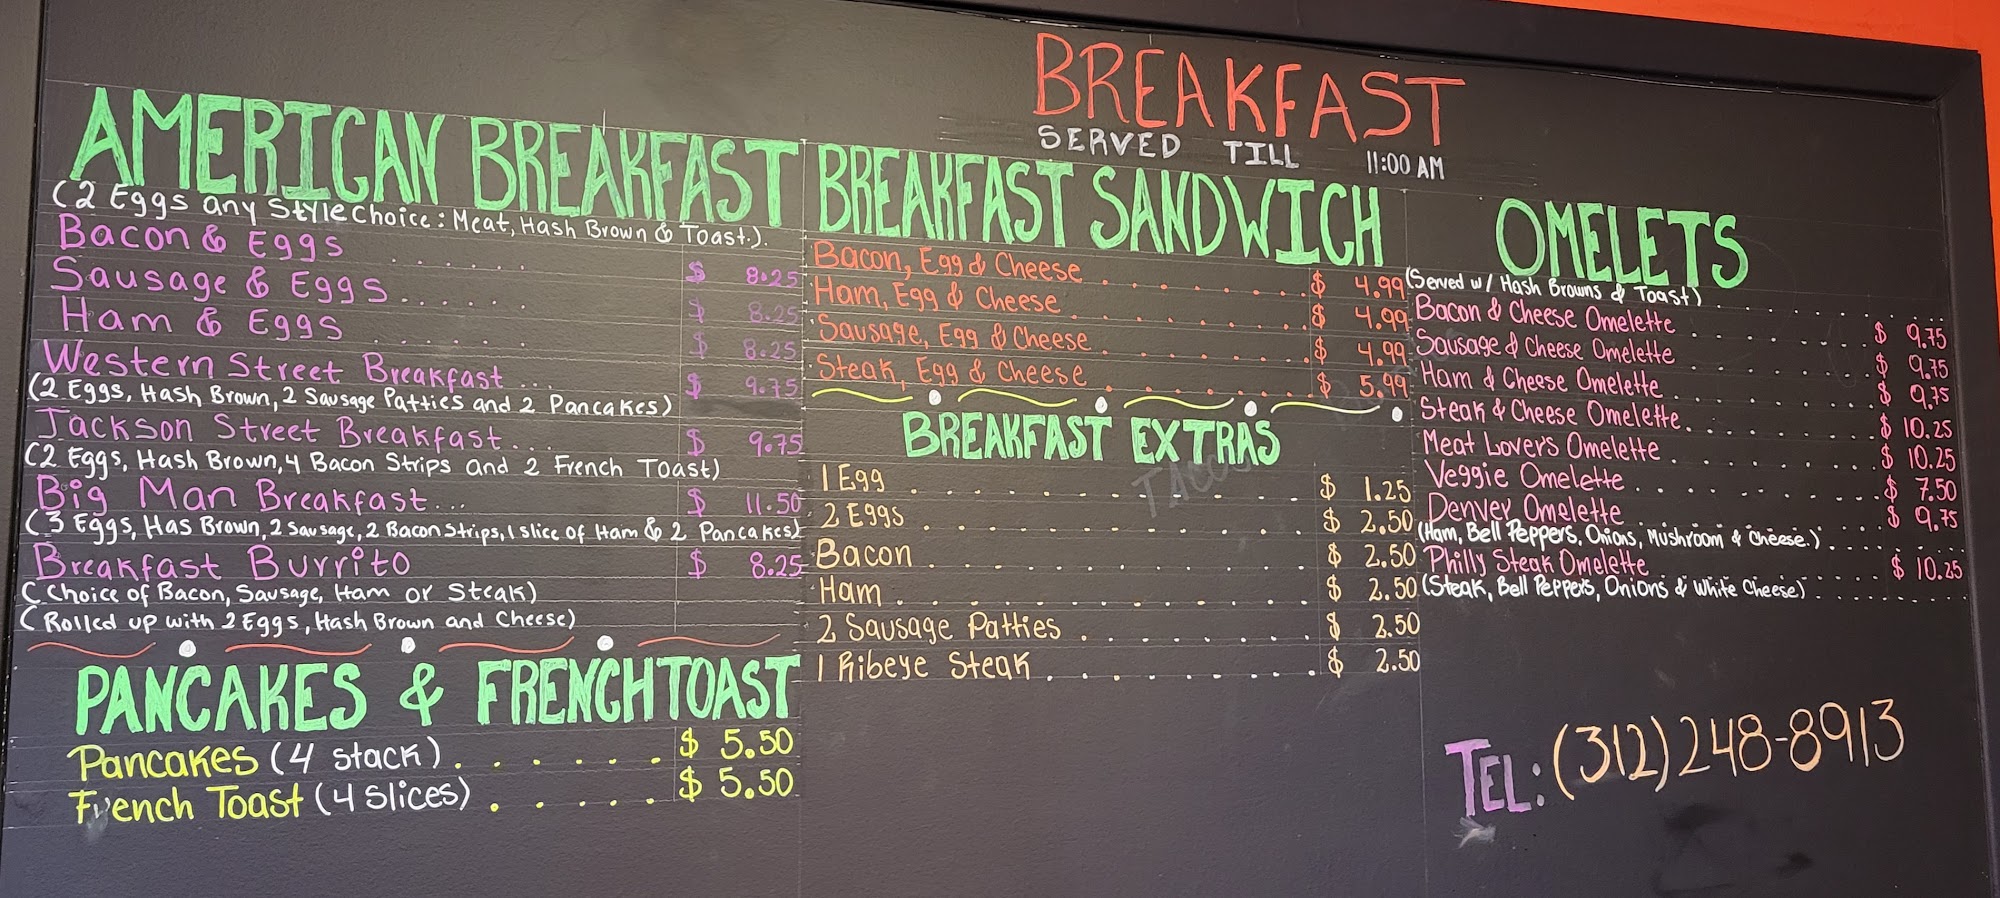 BREAKFAST
SERVED TILL 11:00 AM
AMERICAN BREAKFAST
(2 Eggs any Style Choice: Meat, Hash Brown & Toast.).
Bacon & Eggs ...... $ 8.25
Sausage & Eggs...... $ 8.25
Ham & Eggs ...... $ 8.25
Western Street Breakfast ... $ 9.75
(2 Eggs, Hash Brown, 2 Sausage Patties and 2 Pancakes)
Jackson Street Breakfast... $ 9.75
(2 Eggs, Hash Brown, 4 Bacon Strips and 2 French Toast)
Big Man Breakfast... $ 11.50
(3 Eggs, Has Brown, 2 Sausage, 2 Bacon Strips, 1 slice of Ham & 2 Pancakes)
Breakfast Burrito $ 8.25
(Choice of Bacon, Sausage, Ham or Steak)
(Rolled up with 2 Eggs, Hash Brown and Cheese)
PANCAKES & FRENCH TOAST
Pancakes (4 stack) ...... $ 5.50
French Toast (4 slices) ..... $ 5.50
BREAKFAST SANDWICH
Bacon, Egg & Cheese ........ $ 4.99
Ham, Egg & Cheese ......... $ 4.99
Sausage, Egg & Cheese ........ $ 4.99
Steak, Egg & Cheese ........ $ 5.99
BREAKFAST EXTRAS
1 Egg .......... $ 1.25
2 Eggs .......... $ 2.50
Bacon .......... $ 2.50
Ham .......... $ 2.50
2 Sausage Patties ....... $ 2.50
1 Ribeye Steak ........ $ 2.50
TACO
OMELETS
(Served w/ Hash Browns & Toast)
Bacon & Cheese Omelette ........ $ 9.75
Sausage & Cheese Omelette ........ $ 9.75
Ham & Cheese Omelette ........ $ 9.75
Steak & Cheese Omelette ........ $ 10.25
Meat Lovers Omelette ........ $ 10.25
Veggie Omelette ........ $ 7.50
Denver Omelette ........ $ 9.75
(Ham, Bell Peppers, Onions, Mushroom & Cheese.) ......
Philly Steak Omelette ........ $ 10.25
(Steak, Bell Peppers, Onions & White Cheese) ........
TEL: (312) 248-8913